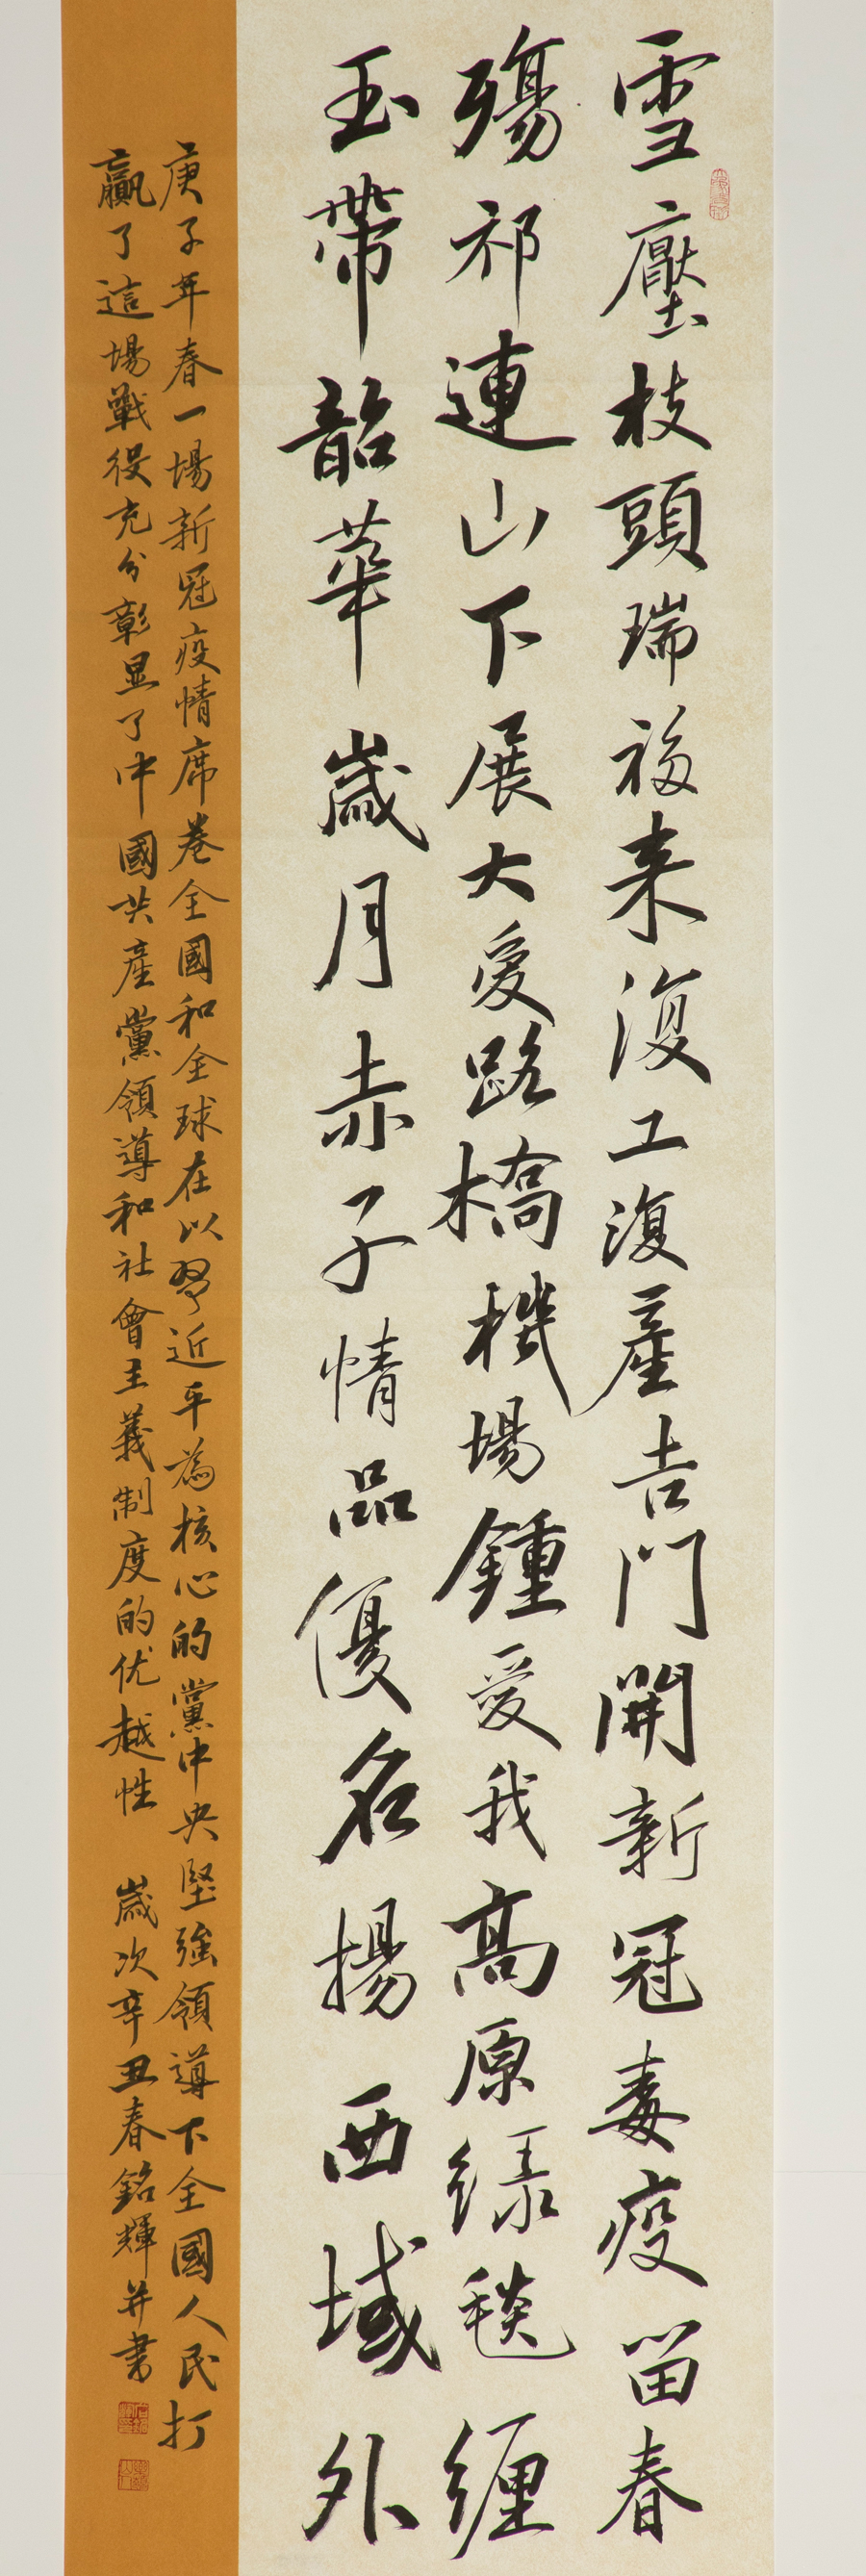 雪壓枝頭瑞福来復工復產吉門開新冠毒疫留春
殤祁連山下展大爱路橋機場鍾爱我高原绿毯缠
玉帶韶華歲月赤子情品優名揚西域外
庚子年春一場新冠疫情席卷全國和全球在以習近平為核心的黨中央堅強領導下全國人民打
贏了這場戰役充分彰显了中國共產黨領導和社會主義制度的优越性 歲次辛丑春銘輝并書